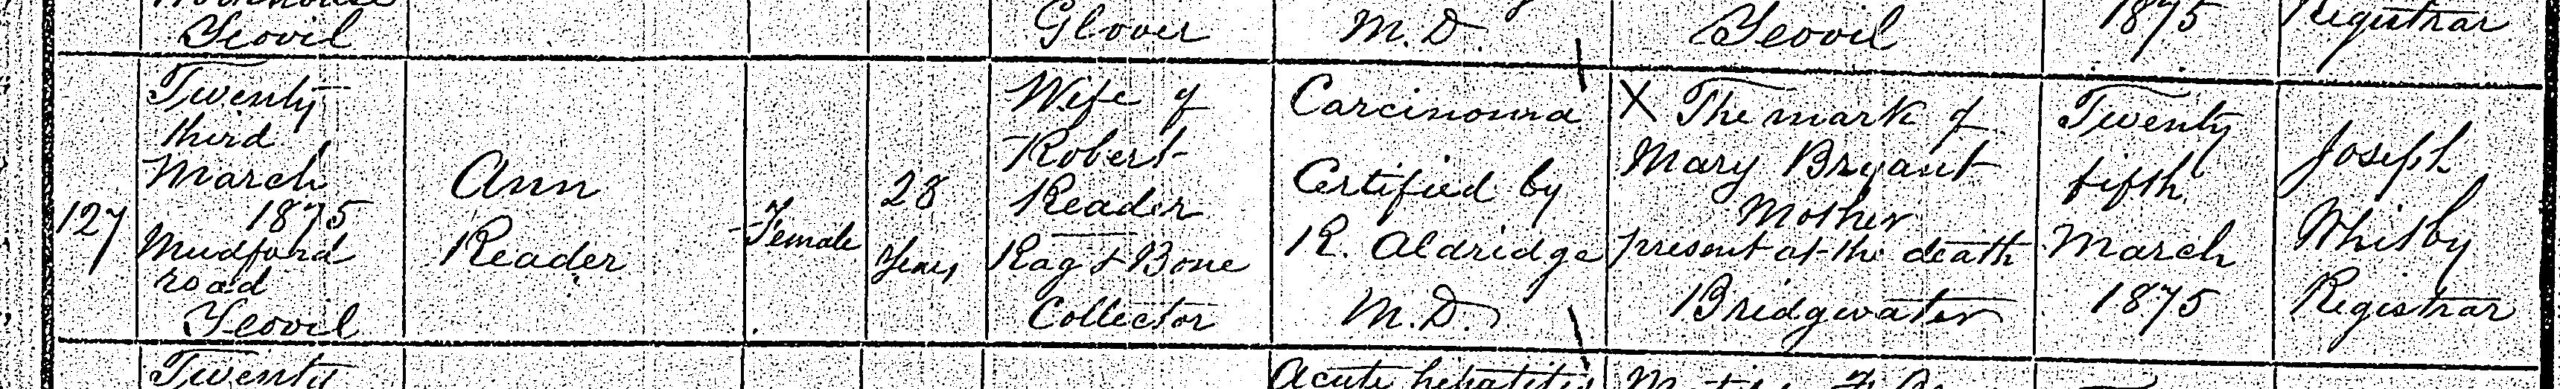 Yeovil
Glover
M.D.
Yeovil
1875
Registrar
127
Twenty
third
March
1875
Mudford
road
Yeovil
Ann
Reader
Female
28
Years
Wife of
Robert
Reader
Rag & Bone
Collector
Carcinoma
Certified by
R. Aldridge
M.D.
X The mark of
Mary Bryant
Mother
present at the death
Bridgwater
Twenty
fifth
March
1875
Joseph
Whitby
Registrar
Twenty
Acute hepatitis